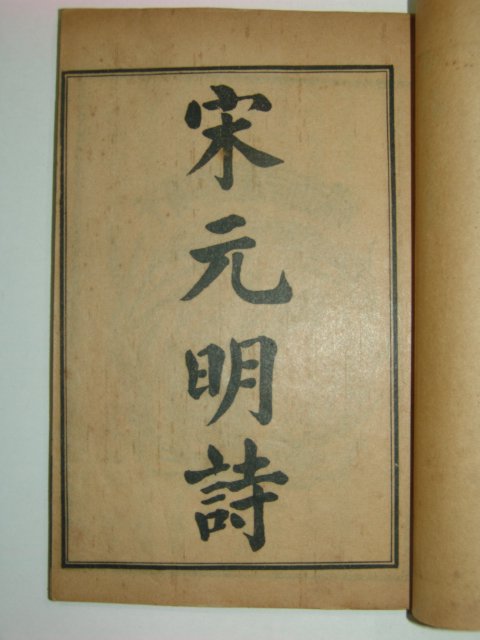 宋元明詩